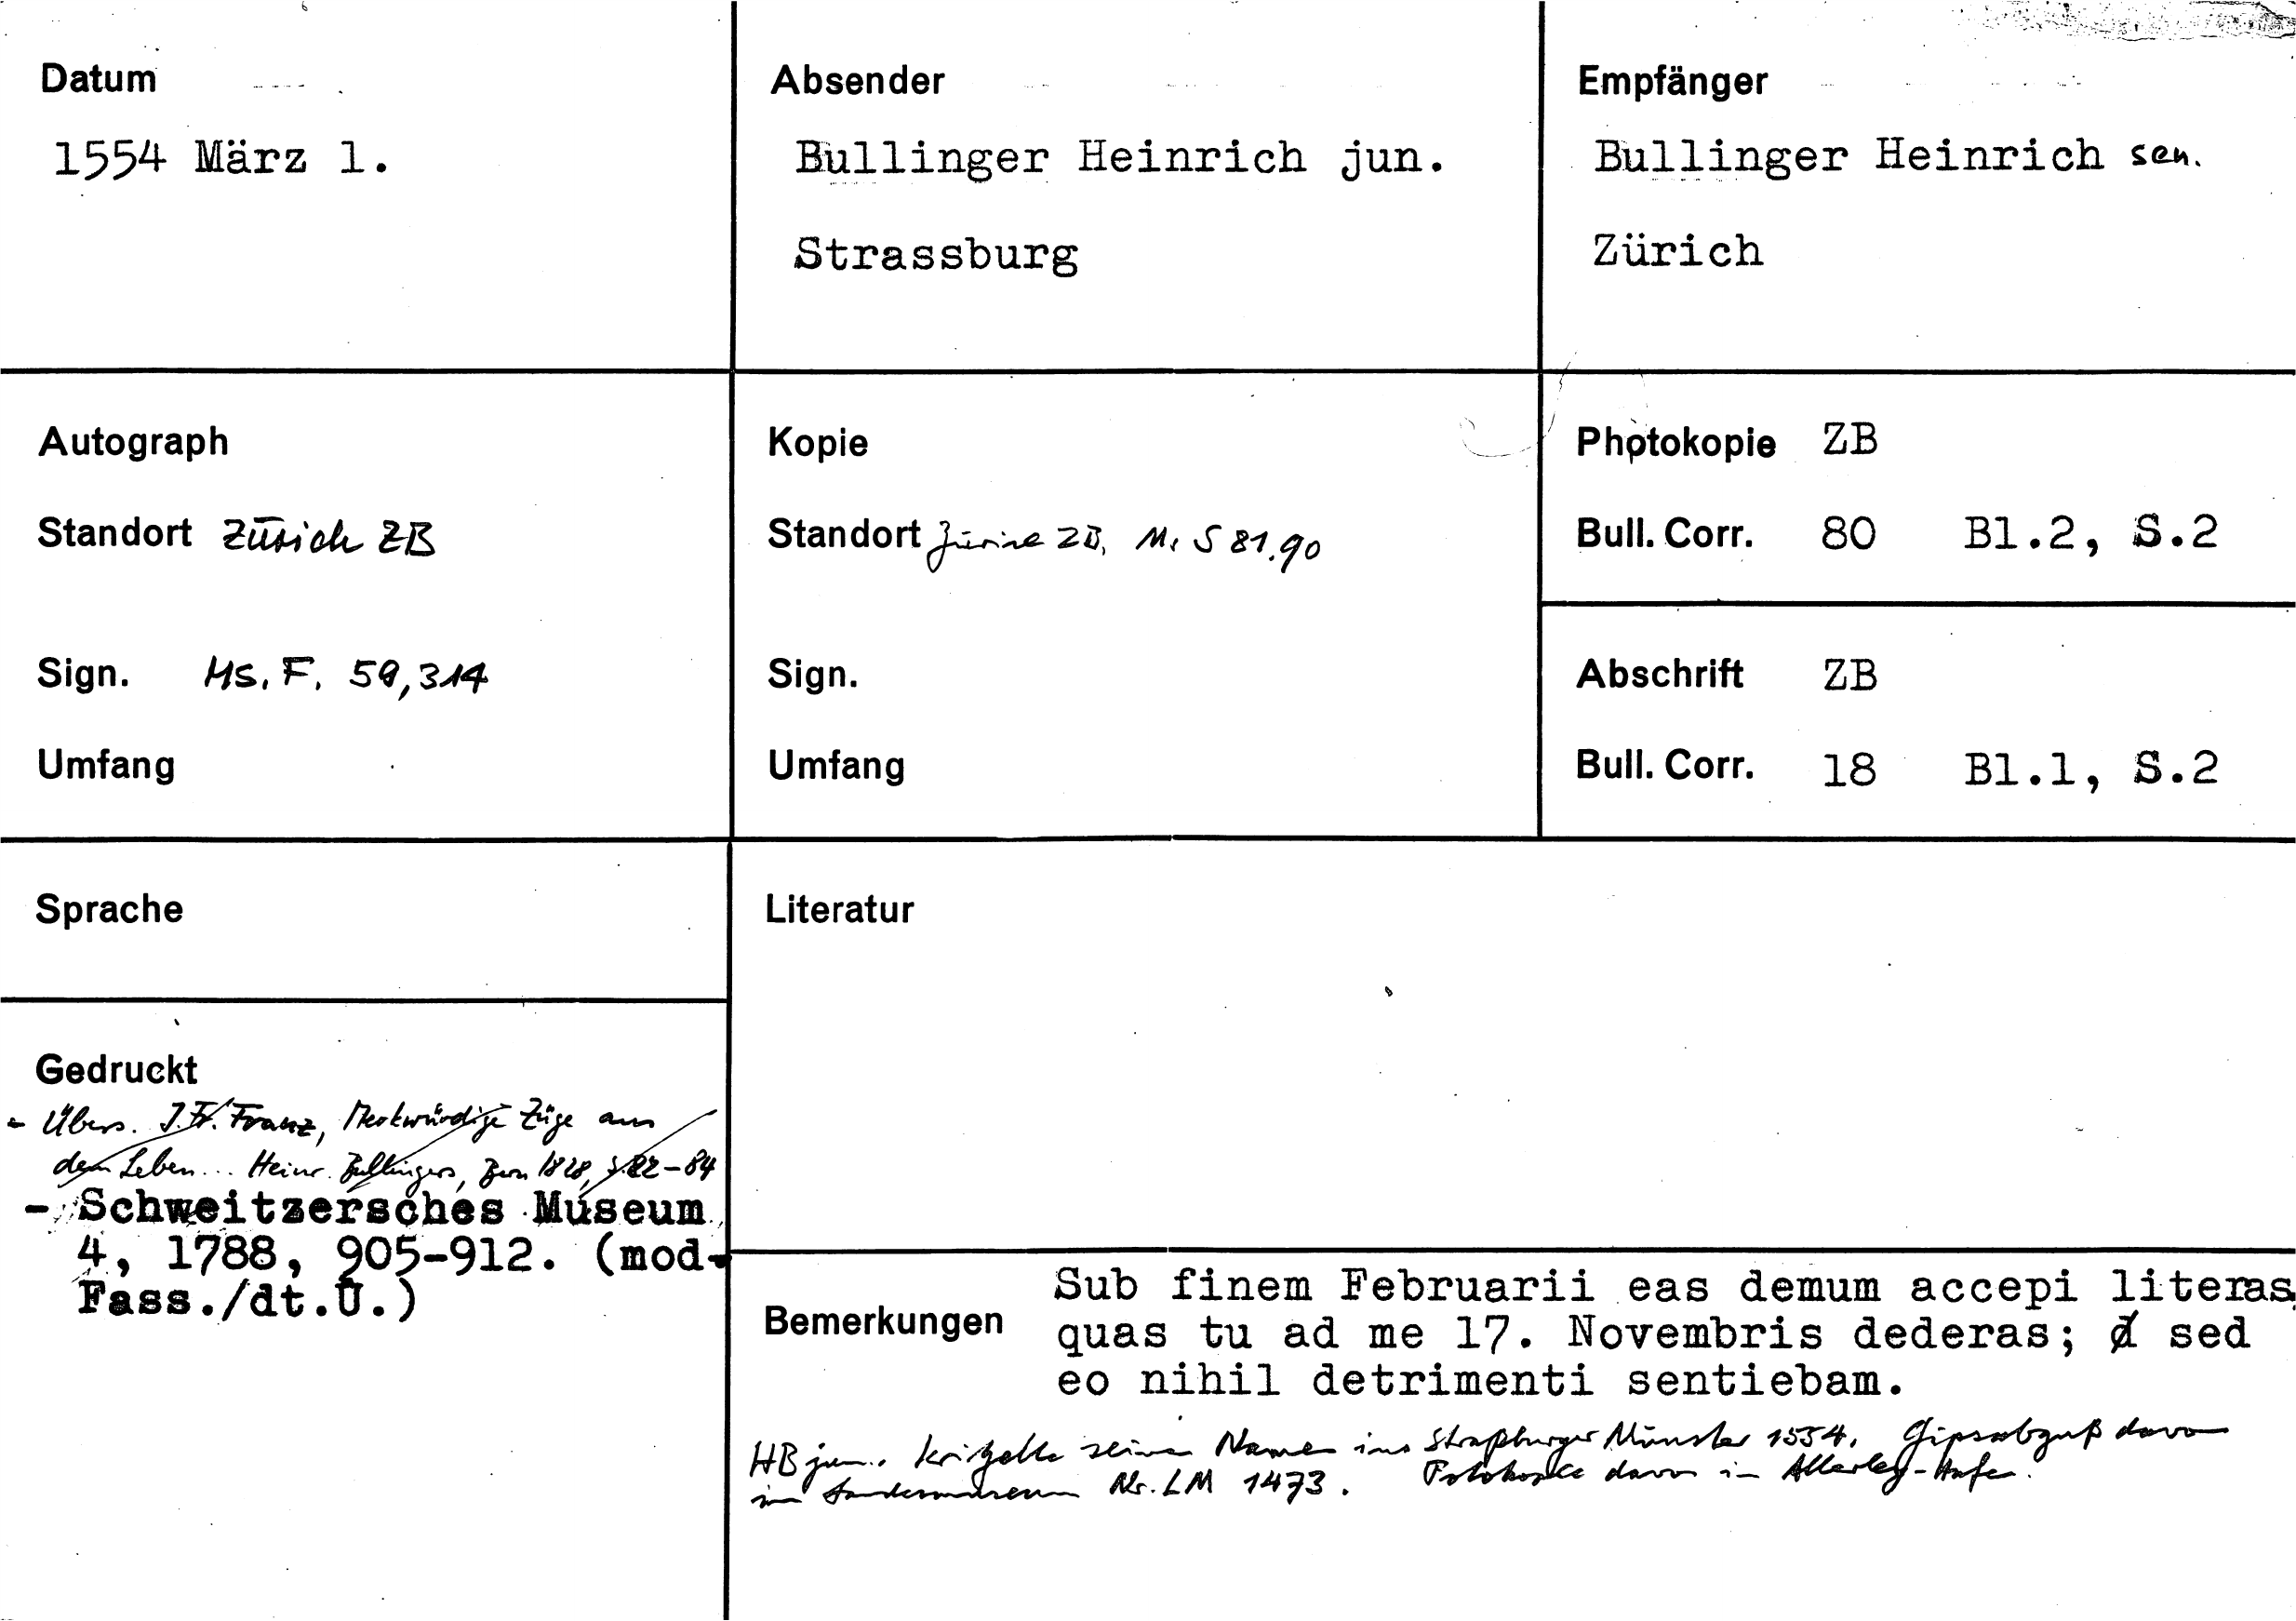 Datum
1554 März 1.
Absender
Bullinger Heinrich jun.
Strassburg
Empfänger
Bullinger Heinrich sen.
Zürich
Autograph
Standort Zürich ZB
Sign. Ms. F. 59,314
Umfang
Kopie
Standort Zürich ZB, Ms S 81.90
Sign.
Umfang
Photokopie ZB
Bull. Corr. 80 Bl.2, S.2
Abschrift ZB
Bull. Corr. 18 Bl.1, S.2
Sprache
Gedruckt
- Übers. J.Fr. Franz, Merkwürdige Züge aus
dem Leben... Heinr. Bullingers, Bern 1828, S.82-84
- Schweitzersches Museum
4, 1788, 905-912. (mod.
Fass./dt.Ü.)
Literatur
Bemerkungen
Sub finem Februarii eas demum accepi literas,
quas tu ad me 17. Novembris dederas; sed
eo nihil detrimenti sentiebam.
HB jun. kritzelte seinen Namen ins Straßburger Münster 1554. Gipsabguß davon
im Landesmuseum Nr. LM 1473. Fotokopie davon in Allerley-Hafen.